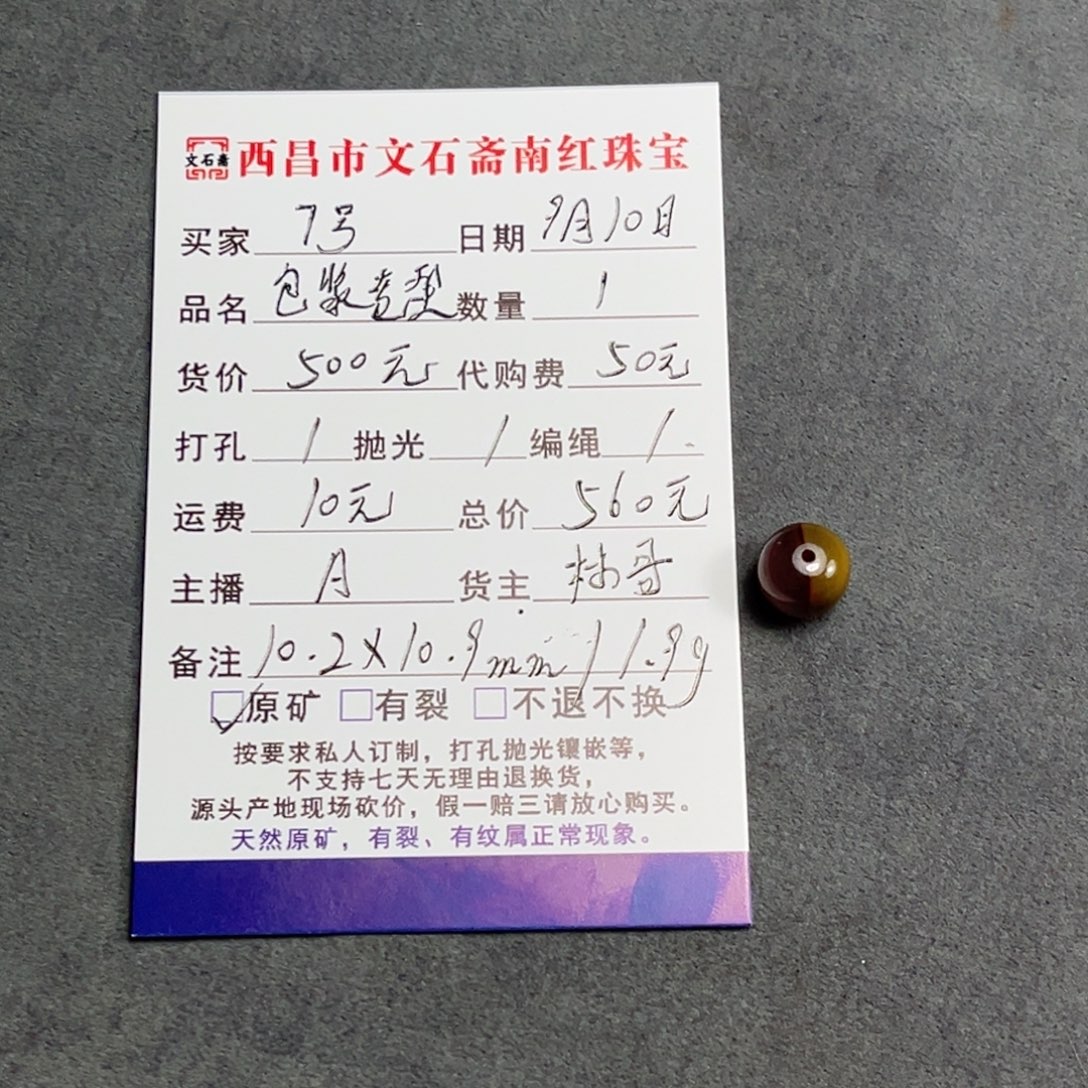 文石斋 西昌市文石斋南红珠宝
买家 7号 日期 9月10日
品名 包浆 数量 1
货价 500元 代购费 50元
打孔 / 抛光 / 编绳 /.
运费 10元 总价 560元
主播 月 货主 林哥
备注 10.2X10.9mm/1.9g
原矿 有裂 不退不换
按要求私人订制，打孔抛光镶嵌等，
不支持七天无理由退换货，
源头产地现场砍价，假一赔三请放心购买。
天然原矿，有裂、有纹属正常现象。